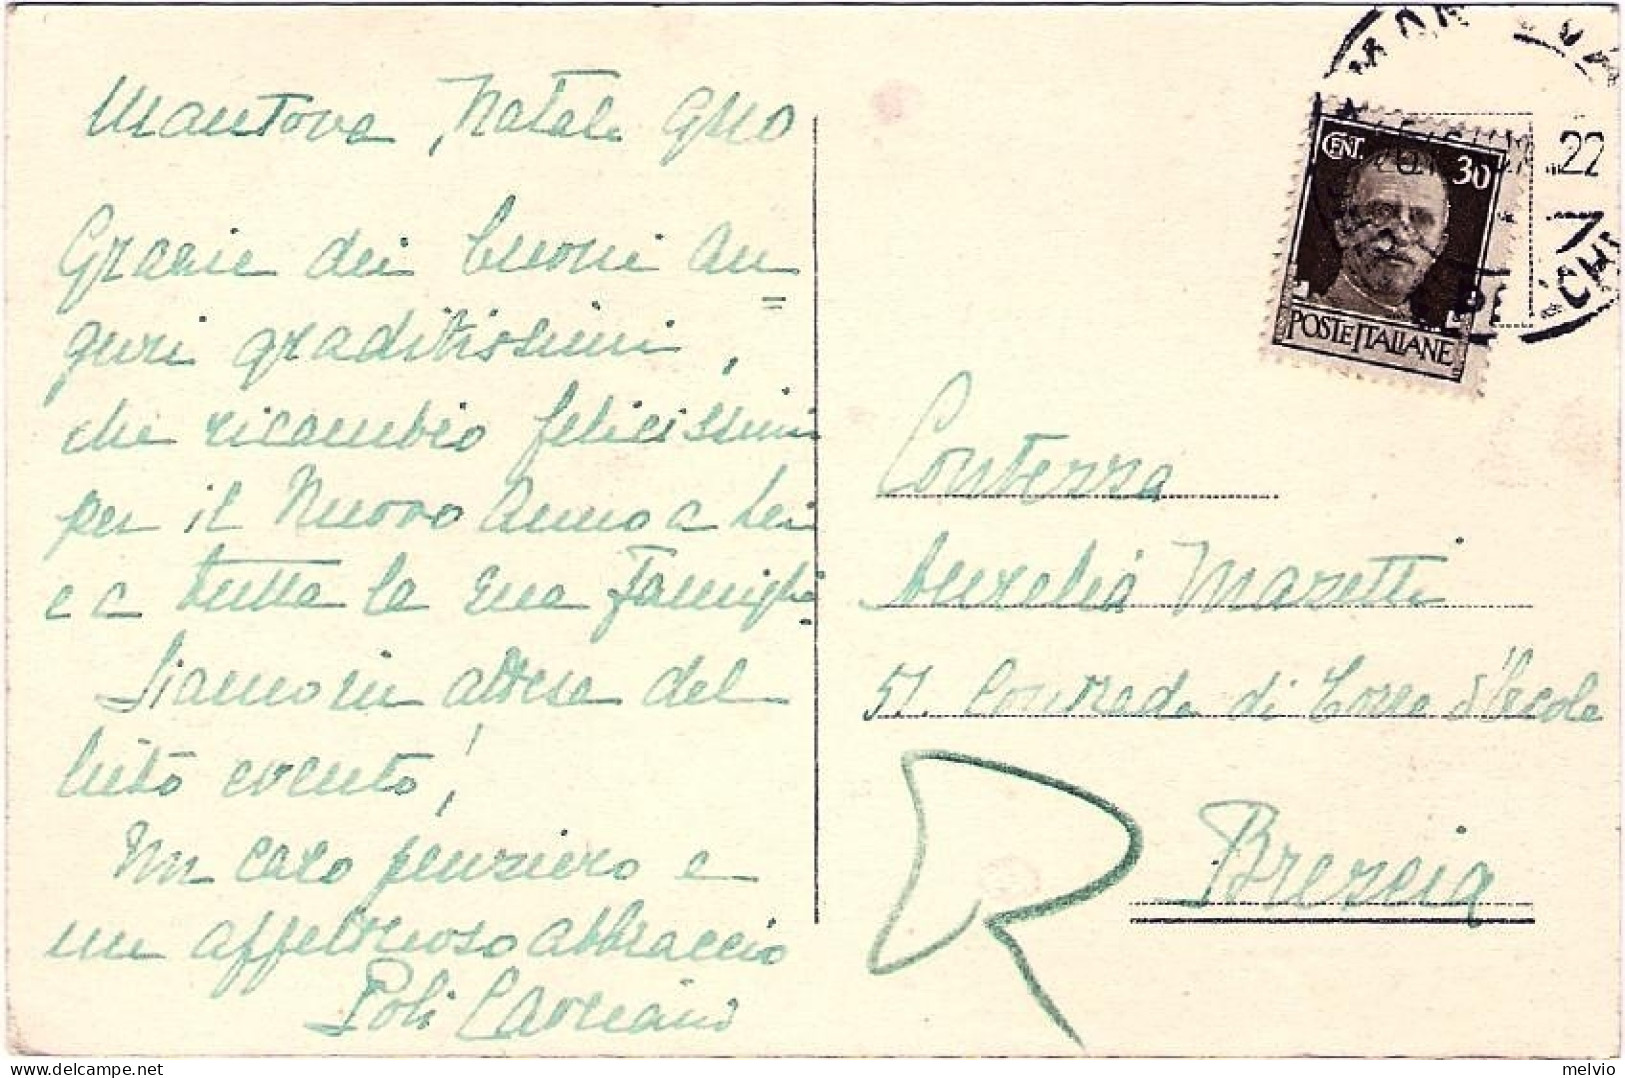 Mantova, Natale 940
Grazie dei buoni au
guri graditissimi,
che ricambio felicissimi
per il Nuovo Anno a Lei
e a tutta la sua famiglia
Siamo in attesa del
lieto evento!
Un caro pensiero e
un affettuoso abbraccio
Poli Cavriani
CENT. 30
POSTE ITALIANE
22
Contessa
Aurelia Mazzetti
51. Contrada di Torre d'Ercole
Brescia
R
melvio